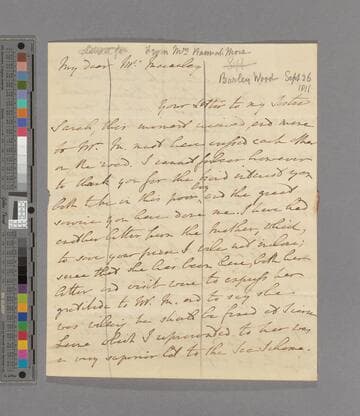 From Mrs Hannah More
Barley Wood Sept 26
1811
My dear Mrs Macaulay
Your Letter to my Sister
Sarah, this moment received and mine
to Mr. M. must have crossed each other
on the road. I cannot however
to thank you for the kind interest you
both take in this poor boy and the great
service you have done me. I have had
another letter from the Mother, which,
to save your time I will not inclose;
since that she has been here, both her
letter and visit were to express her
gratitude to Mr. M. and to say she
was willing he should be freed at Sierra
Leone which I represented to her was
a very superior lot to the Sea Scheme.